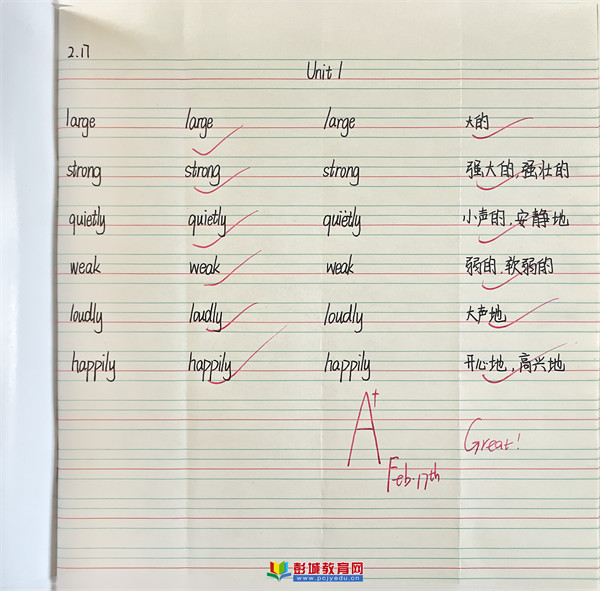 2.17
Unit 1
large large large 大的
strong strong strong 强大的,强壮的
quietly quietly quietly 小声的,安静地
weak weak weak 弱的,软弱的
loudly loudly loudly 大声地
happily happily happily 开心地,高兴地
A+
Great!
Feb.17th
彭城教育网
www.pcjyedu.cn